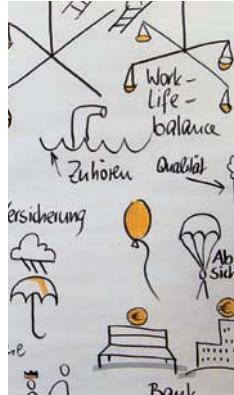 Work-
Life-
balance
Zuhören
Qualität
ersicherung
Ab
sich
€
€
Bank